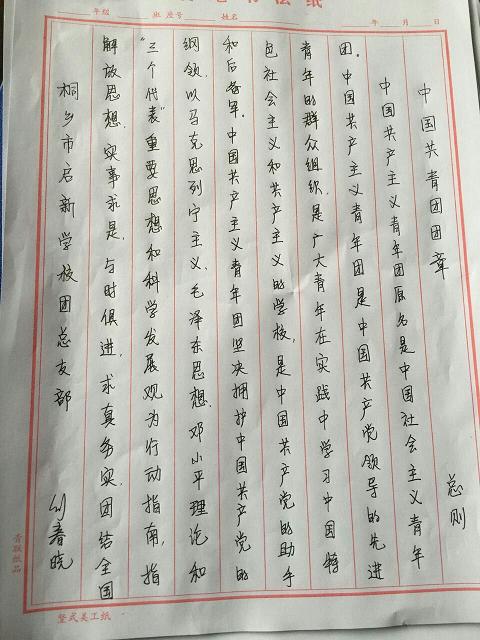 书法纸
年级 班 座号 姓名 年 月 日
中国共青团团章
总则
中国共产主义青年团原名是中国社会主义青年
团。中国共产主义青年团是中国共产党领导的先进
青年的群众组织,是广大青年在实践中学习中国特
色社会主义和共产主义的学校,是中国共产党的助手
和后备军。中国共产主义青年团坚决拥护中国共产党的
纲领,以马克思列宁主义、毛泽东思想、邓小平理论和
“三个代表”重要思想和科学发展观为行动指南,指
解放思想,实事求是,与时俱进,求真务实,团结全国
桐乡市启新学校团总支部 刘春晓
青联纸品
竖式美工纸